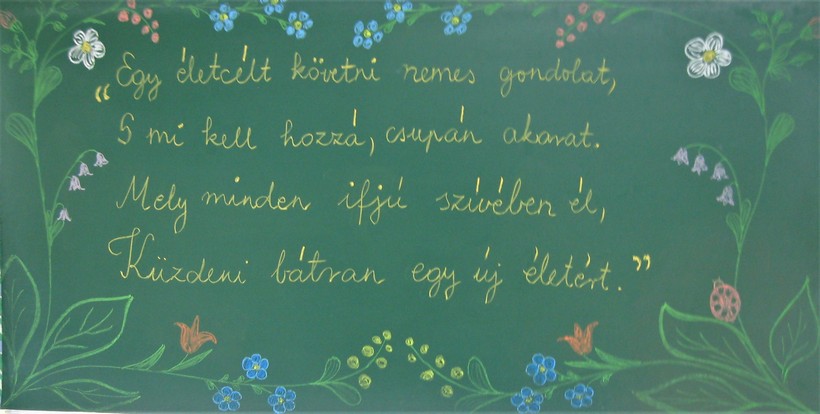 „Egy életcélt követni nemes gondolat,
S mi kell hozzá, csupán akarat.
Mely minden ifjú szívében él,
Küzdeni bátran egy új életért.”